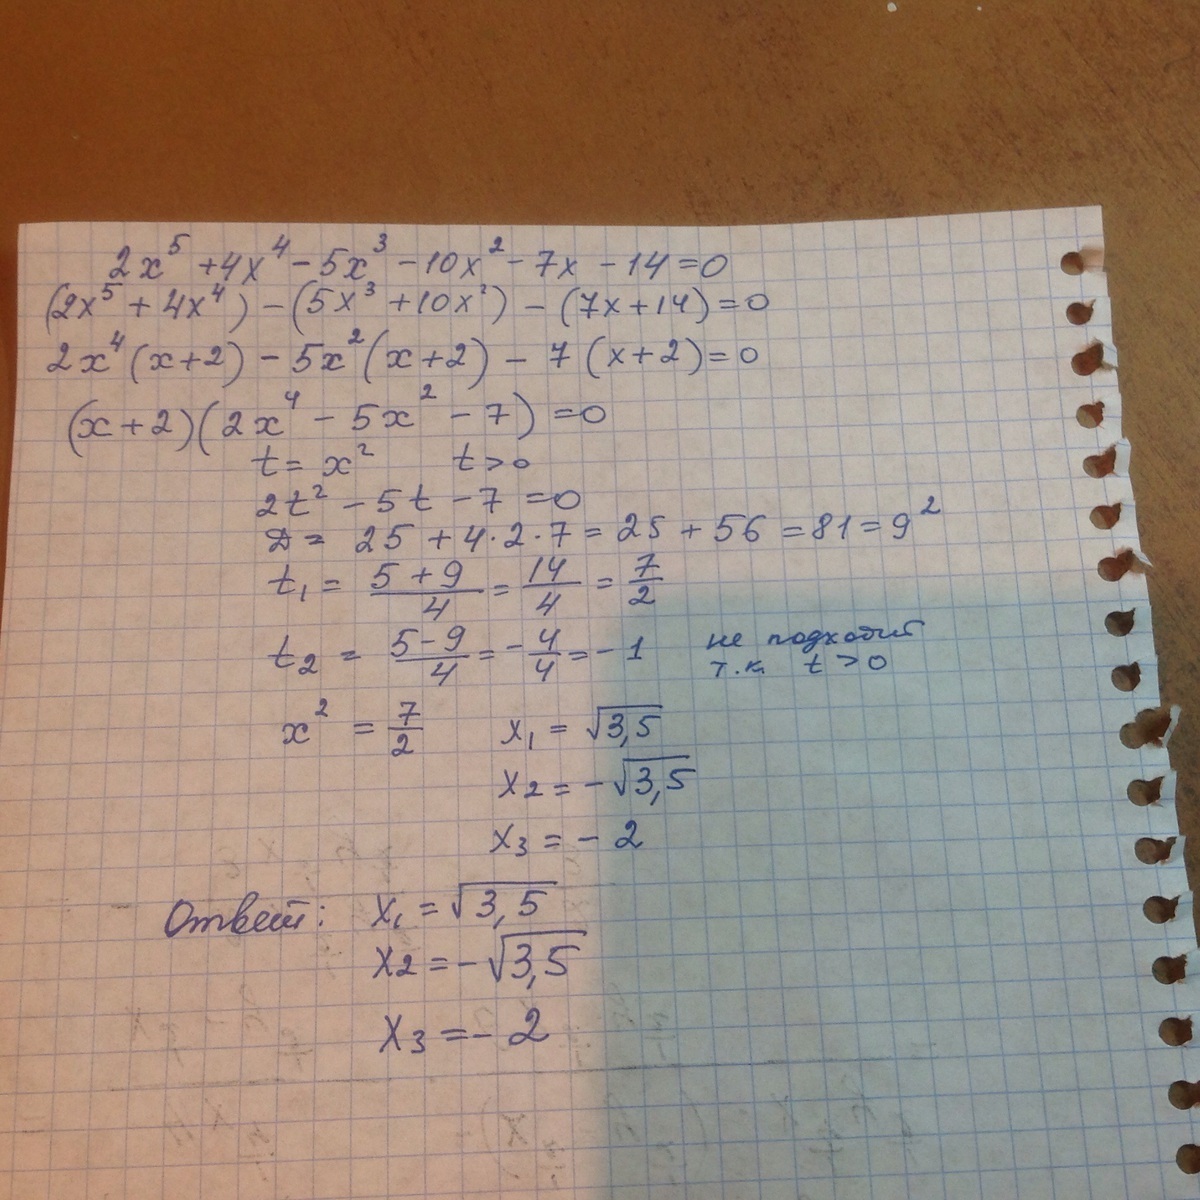 2x⁵ + 4x⁴ - 5x³ - 10x² - 7x - 14 = 0
(2x⁵ + 4x⁴) - (5x³ + 10x²) - (7x + 14) = 0
2x⁴(x+2) - 5x²(x+2) - 7(x+2) = 0
(x+2)(2x⁴ - 5x² - 7) = 0
t = x² t > 0
2t² - 5t - 7 = 0
D = 25 + 4·2·7 = 25 + 56 = 81 = 9²
t₁ = (5+9)/4 = 14/4 = 7/2
t₂ = (5-9)/4 = -4/4 = -1 не подходит
т.к. t > 0
x² = 7/2 x₁ = √3,5
x₂ = -√3,5
x₃ = -2
Ответ: x₁ = √3,5
x₂ = -√3,5
x₃ = -2